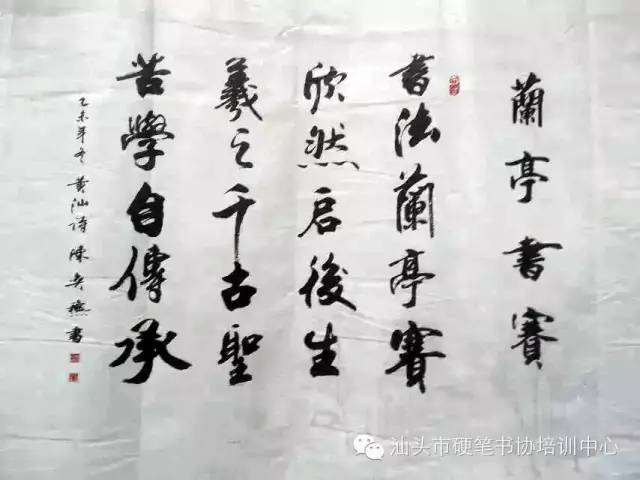 蘭亭書賽
書法蘭亭賽
欣然启後生
羲之千古聖
苦學自傳承
乙未年冬黄汕诗陳英燕書
汕头市硬笔书协培训中心